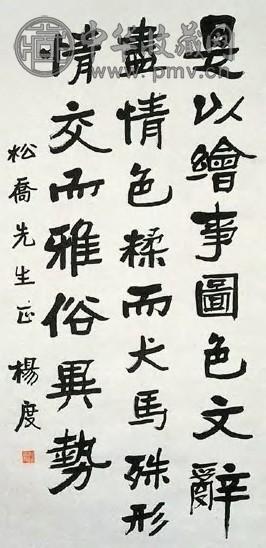 中华收藏网
www.pmv.cn
是以繪事圖色文辭
盡情色糅而犬馬殊形
情交而雅俗異勢
松喬先生正 楊度